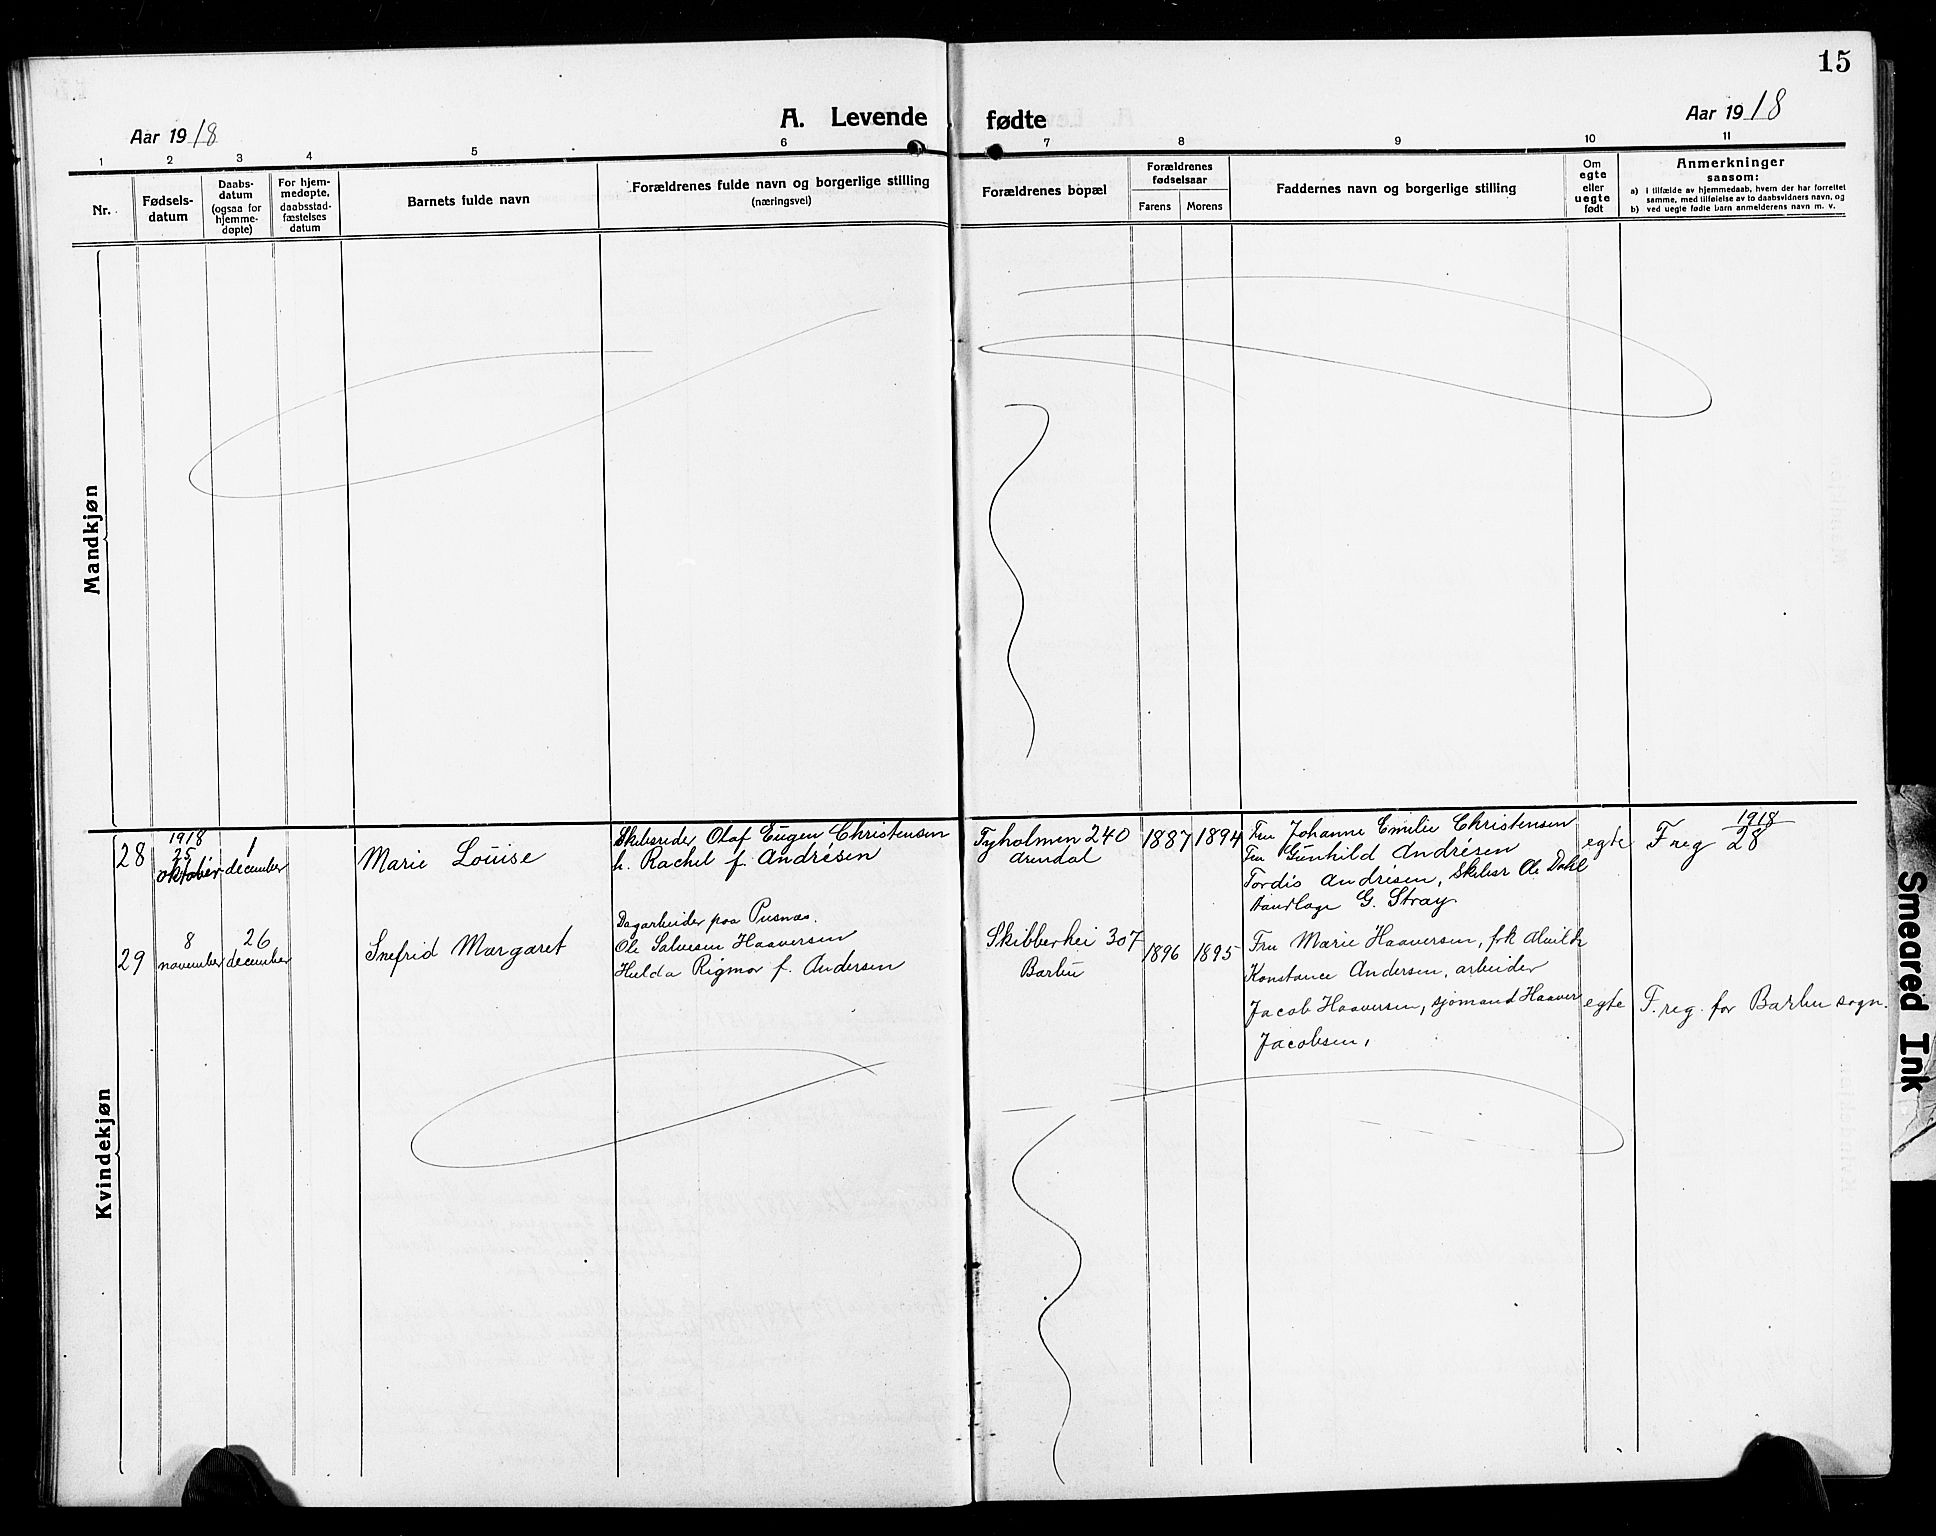 15
A. Levende fødte
Aar 1918
Aar 1918
1 2 3 4 5 6 7 8 9 10 11
Nr.
Fødsels-
datum
Daabs-
datum
(ogsaa for
hjemme-
døpte)
For hjem-
medøpte,
daabsstad-
fæstelses
datum
Barnets fulde navn
Forældrenes fulde navn og borgerlige stilling
(næringsvei)
Forældrenes bopæl
Forældrenes
fødselsaar
Farens Morens
Faddernes navn og borgerlige stilling
Om
egte
eller
uegte
født
Anmerkninger
saasom:
a) i tilfælde av hjemmedaab, hvem der har forrettet
samme, med tilføielse av to daabsvidners navn, og
b) ved uegte fødte barn anmelderens navn m. v.
Mandkjøn
Kvindekjøn
28
1918
25
oktober
1
december
Marie Louise
Skibsreder Olaf Eugen Christensen
h. Rachel f. Andrésen
Tyholmen 240
Arendal
1887 1894
Fru Johanne Emilie Christensen
Fru Gunhild Andrésen
Tordis Andresen, Skibsr Ole Dahl
G. Stray
egte
F reg 1918/28
29
8
november
26
december
Snefrid Margaret
Dagarbeider paa Pusnæs.
Ole Salvesen Haaversen
Hulda Rigmor f. Andersen
Skibberhei 307
Barbu
1896 1895
Fru Marie Haaversen, frk Alvilh
Konstance Andersen, arbeider
Jacob Haaversen, sjømand Haaver
Jacobsen,
egte
F. reg. for Barbu sogn.
Smeared Ink